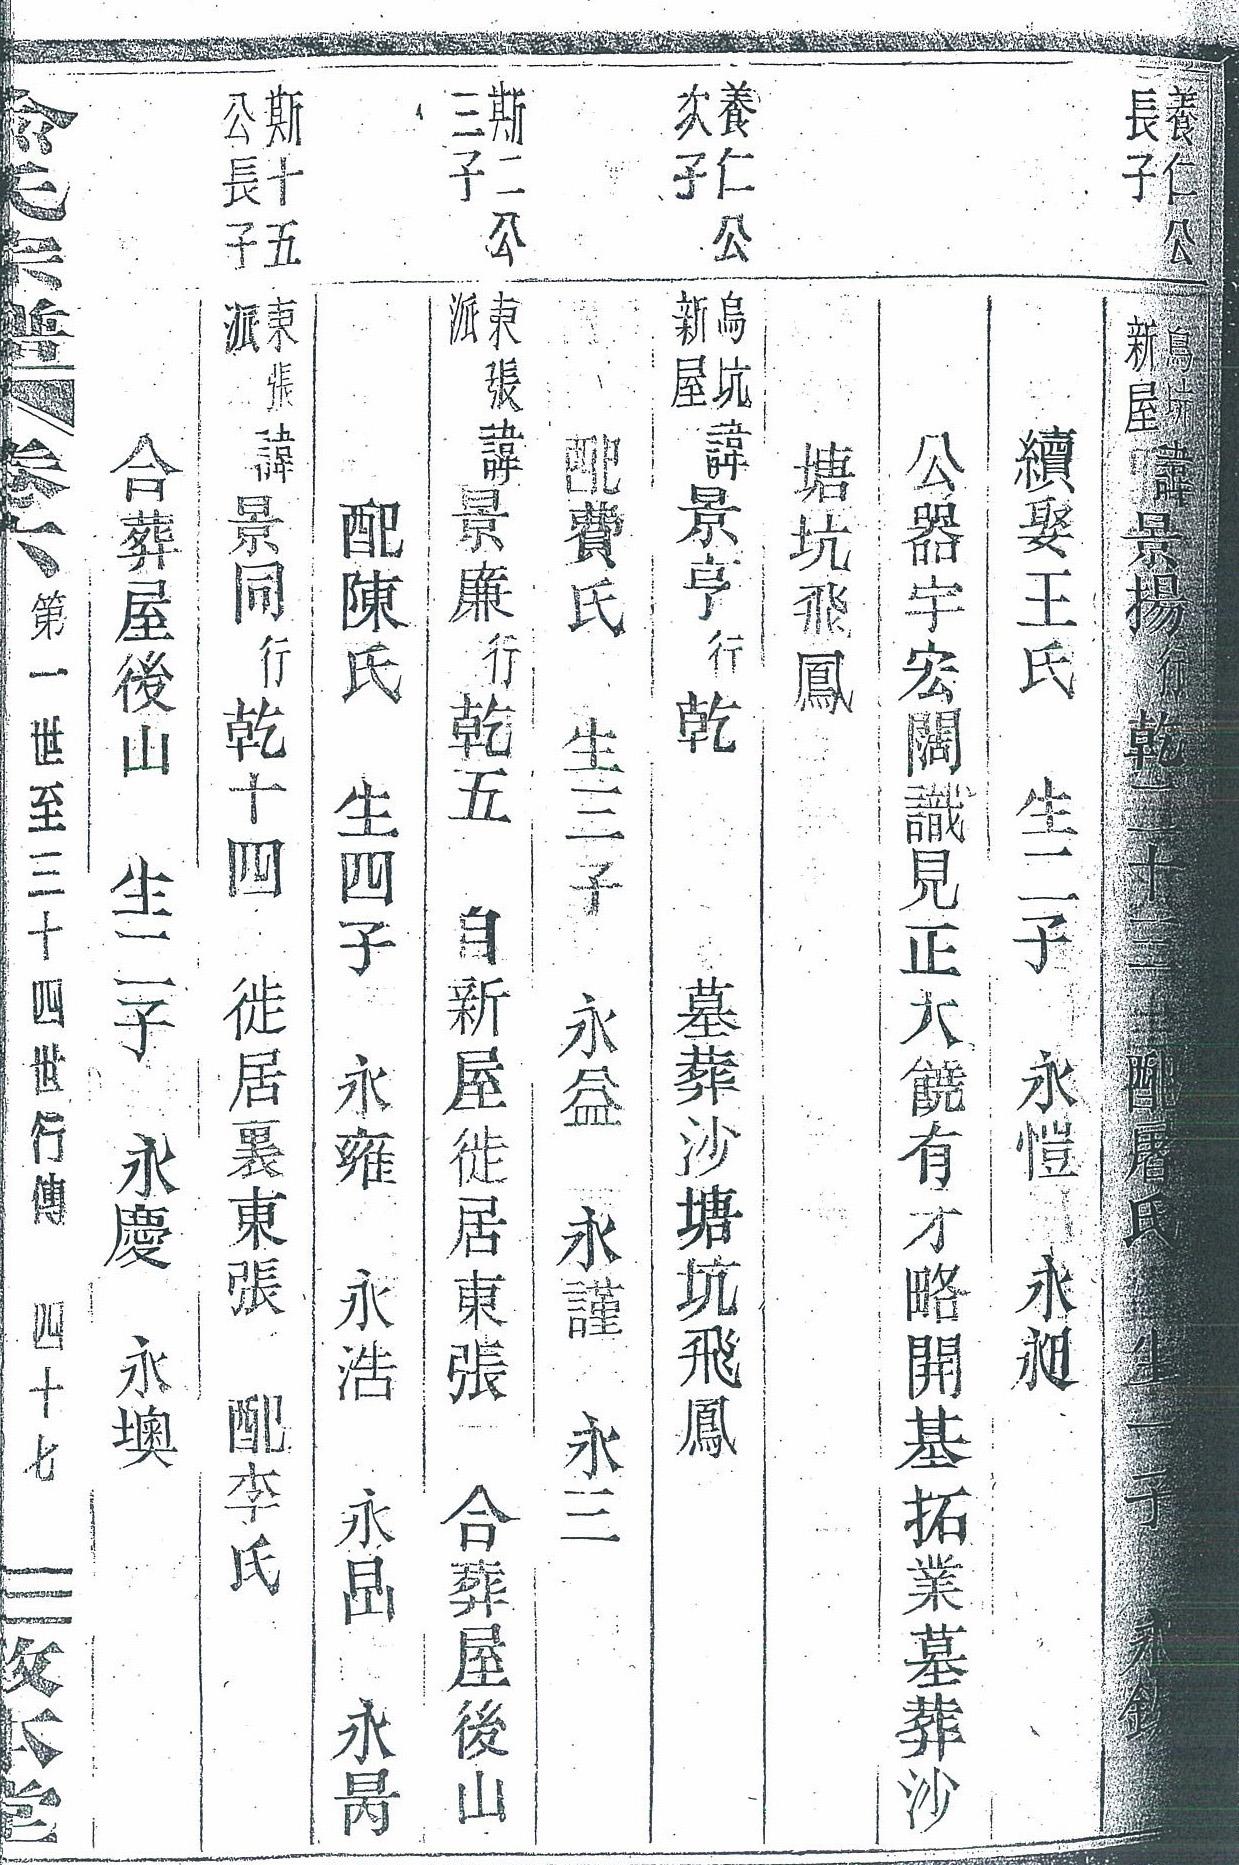 養仁公
長子
烏坑
新屋
諱景揚行乾二十三 配屠氏 生一子 永
續娶王氏 生二子 永愷 永昶
公器宇宏闊識見正大饒有才略開基拓業墓葬沙
塘坑飛鳳
養仁公
次子
烏坑
新屋
諱景亨行乾 墓葬沙塘坑飛鳳
配費氏 生三子 永益 永謹 永三
斯二公
三子
東張
派
諱景廉行乾五 自新屋徙居東張 合葬屋後山
配陳氏 生四子 永雍 永浩 永昌 永昺
斯十五
公長子
東張
派
諱景同行乾十四 徙居裏東張 配李氏
合葬屋後山 生二子 永慶 永墺
俞氏宗譜 卷六 第一世至三十四世行傳 四十七 敦本堂